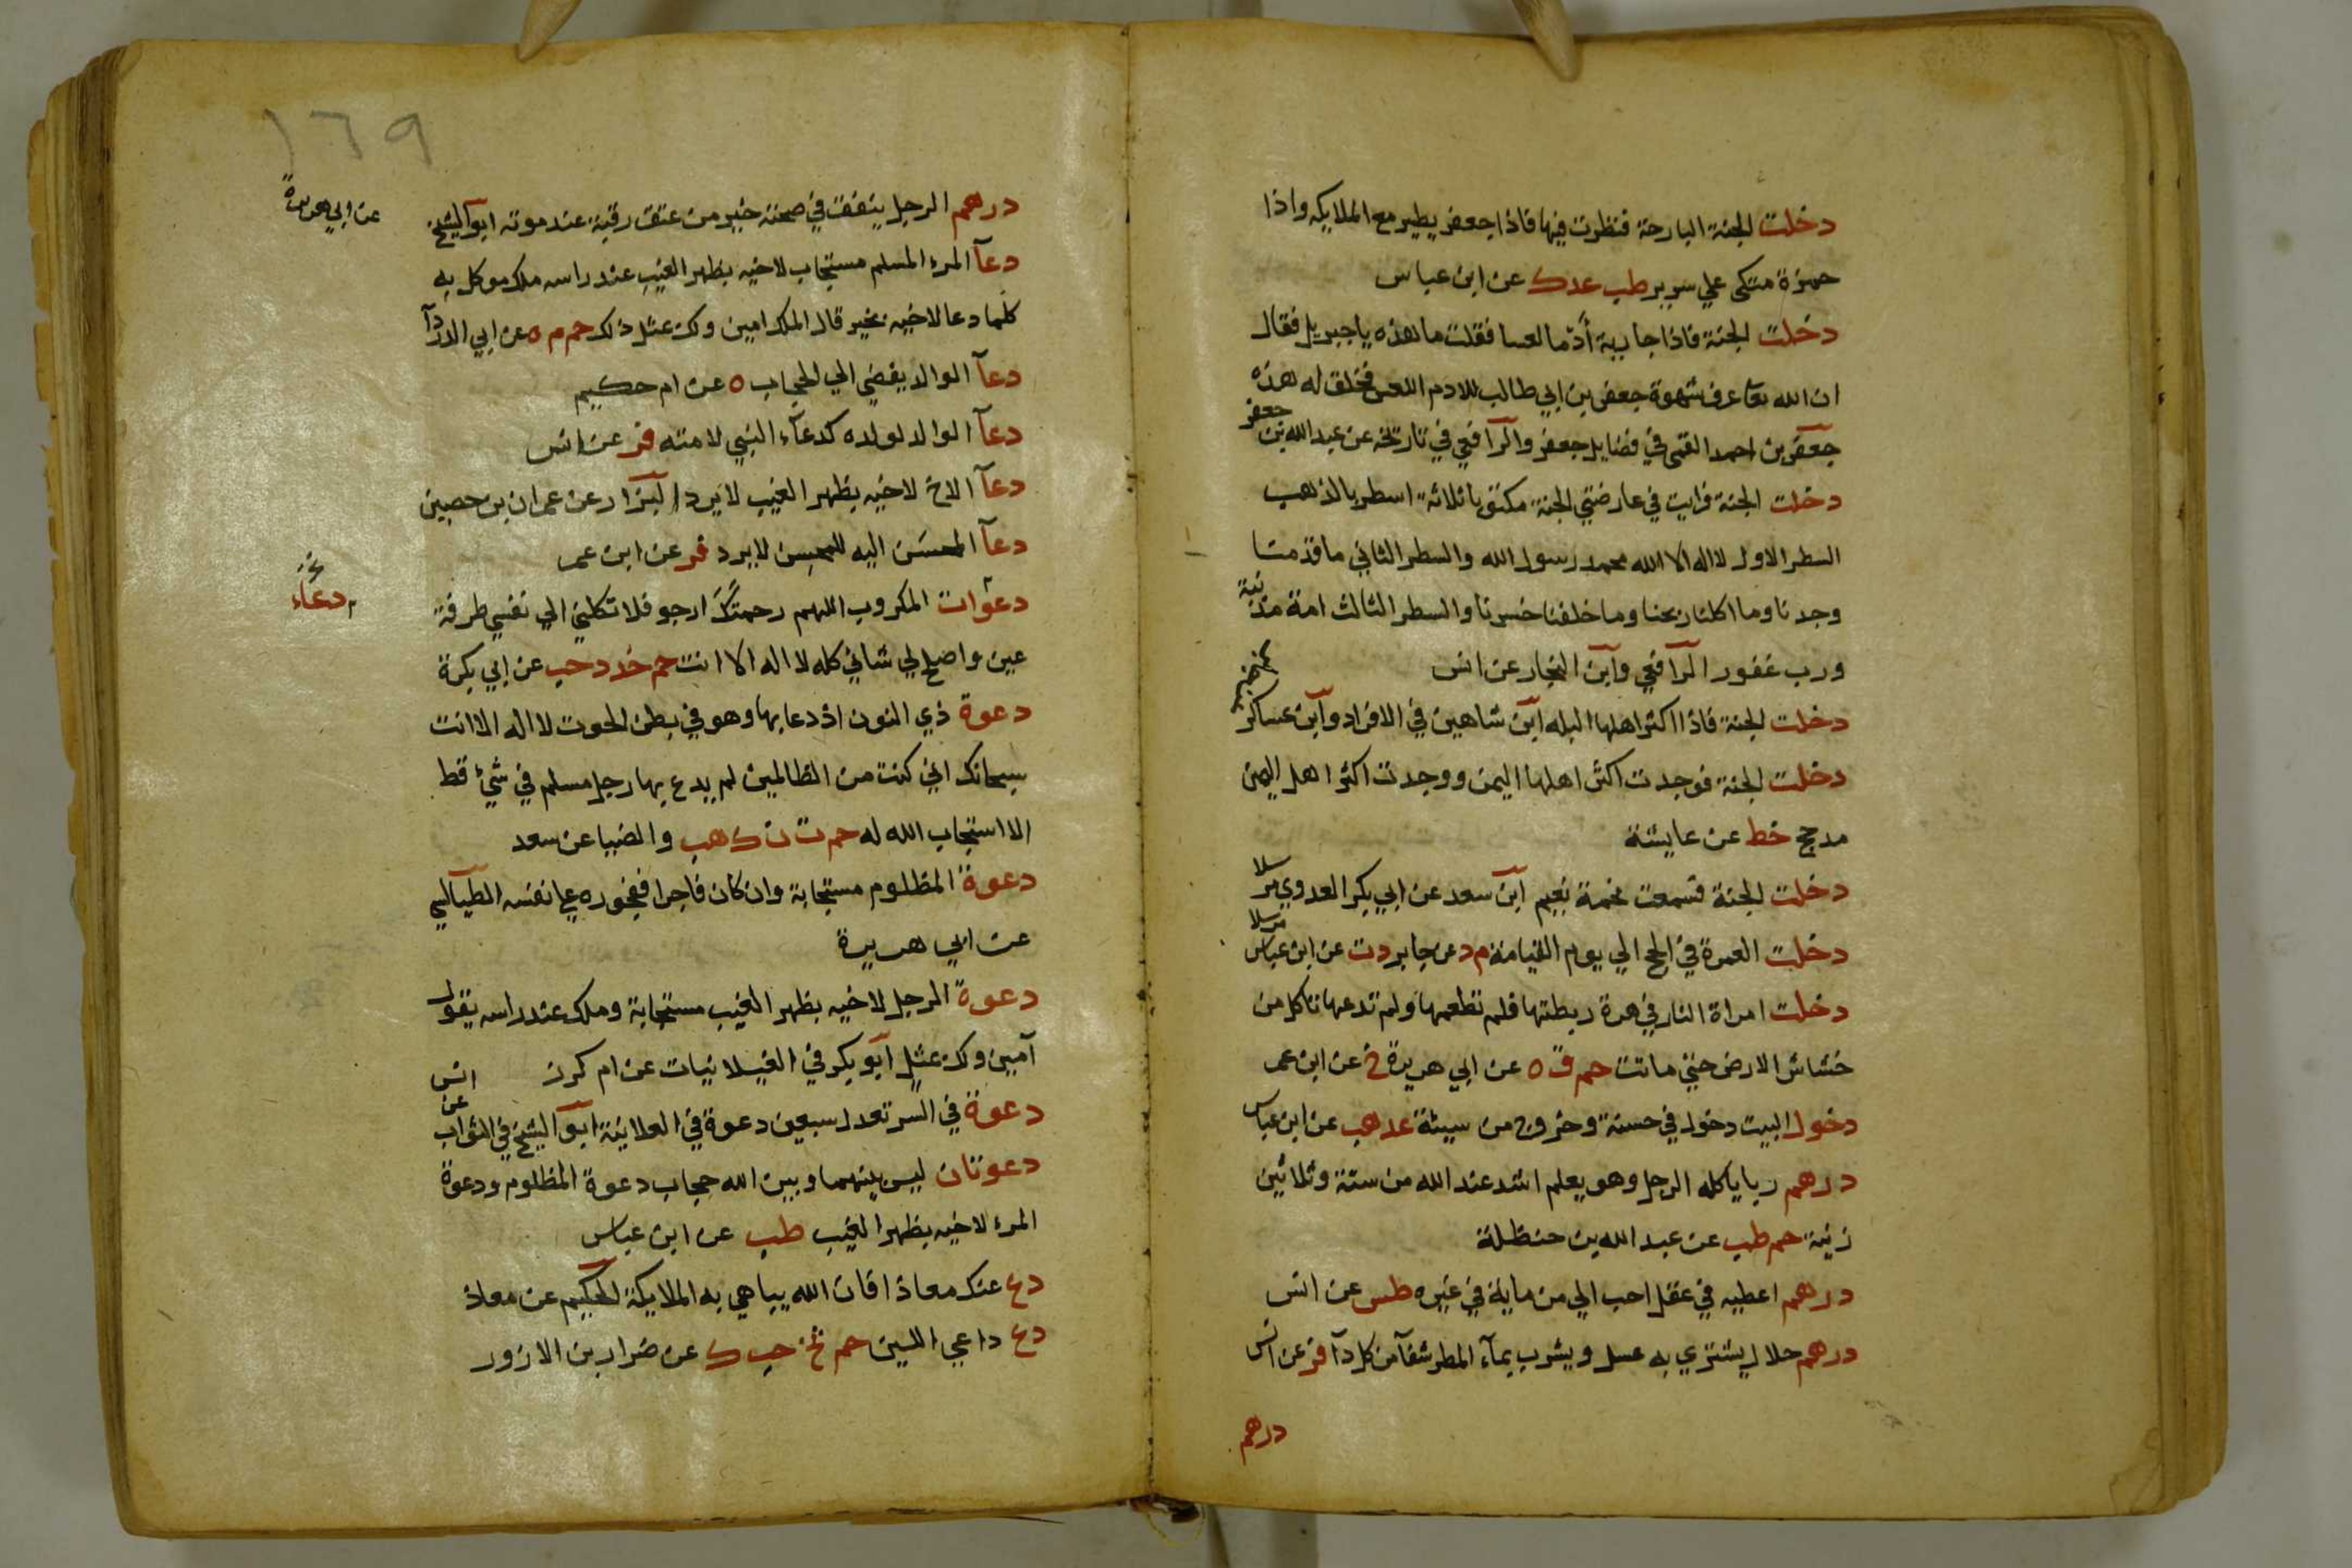 دخلت الجنة البارحة فنظرت فيها فاذا جعفر يطير مع الملايكه واذا
حمزة متكى علي سرير طب عد ك عن ابن عباس
دخلت الجنة فاذا جارية أدما لعسا فقلت ما هذه يا جبريل فقال
ان الله تعا عرف شهوة جعفر بن ابي طالب للادم اللعس فخلق له هذه
جعفر بن احمد القمى في فضايل جعفر والرافعي في تاريخه عن عبد الله بن جعفر
دخلت الجنة فرايت في عارضتي الجنة مكتوبا ثلاثة اسطر بالذهب
السطر الاول لا اله الا الله محمد رسول الله والسطر الثاني ما قدمنا
وجدنا وما اكلنا ربحنا وما خلفنا خسرنا والسطر الثالث امة مذنبة
ورب غفور الرافعي وابن النجار عن انس
دخلت الجنة فاذا اكثر اهلها البله ابن شاهين في الافراد وابن عساكر
عن جابر
دخلت الجنة فوجدت اكثر اهلها اليمن ووجدت اكثر اهل اليمن
مدحج خط عن عايشة
دخلت الجنة فسمعت نحمة نعيم ابن سعد عن ابي بكر العدوي مرسلا
مرسلا
دخلت العمرة في الحج الي يوم القيامة م د عن جابر د ت عن ابن عباس
دخلت امراة النار في هرة ربطتها فلم تطعمها ولم تدعها تاكل من
خشاش الارض حتي ماتت حم ق ه عن ابي هريرة خ عن ابن عمر
دخول البيت دخول في حسنة وخروج من سيئة عد هب عن ابن عباس
درهم ربا ياكله الرجل وهو يعلم اشد عند الله من ستة وثلاثين
زنية حم طب عن عبد الله بن حنظلة
درهم اعطيه في عقل احب الي من ماية في غيره طس عن انس
درهم حلال يشتري به عسل ويشرب بمآء المطر شفآ من كل دآ فر عن انس
درهم
١٦٩
درهم الرجل ينفق في صحته خير من عتق رقبة عند موته ابو الشيخ
عن ابي هريرة
دعآ المرء المسلم مستجاب لاخيه بظهر الغيب عند راسه ملك موكل به
كلما دعا لاخيه بخير قال الملك امين ولك بمثل ذلك حم م ه عن ابي الدردآ
دعآ الوالد يفضي الي الحجاب ه عن ام حكيم
دعآ الوالد لولده كدعآء النبي لامته فر عن انس
دعآ الاخ لاخيه بظهر الغيب لا يرد البزار عن عمران بن حصين
دعآ المحسَن اليه للمحسِن لا يرد فر عن ابن عمر
دعوات المكروب اللهم رحمتك ارجو فلا تكلني الي نفسي طرفة
دعآء
عين واصلح لي شاني كله لا اله الا انت حم خد د حب عن ابي بكرة
دعوة ذي النون اذ دعا بها وهو في بطن الحوت لا اله الا انت
سبحانك اني كنت من الظالمين لم يدع بها رجل مسلم في شئ قط
الا استجاب الله له حم ت ن ك هب والضيا عن سعد
دعوة المظلوم مستجابة وان كان فاجرا ففجوره علي نفسه الطيالسي
عن ابي هريرة
دعوة الرجل لاخيه بظهر الغيب مستجابة وملك عند راسه يقول
آمين ولك بمثل ابو بكر في الغيلانيات عن ام كرز
دعوة في السر تعدل سبعين دعوة في العلانية ابو الشيخ في الثواب عن انس
دعوتان ليس بينهما وبين الله حجاب دعوة المظلوم ودعوة
المرء لاخيه بظهر الغيب طب عن ابن عباس
دع عنك معاذا فان الله يباهي به الملايكة الحكيم عن معاذ
دع داعي اللبن حم تخ حب ك عن ضرار بن الازور